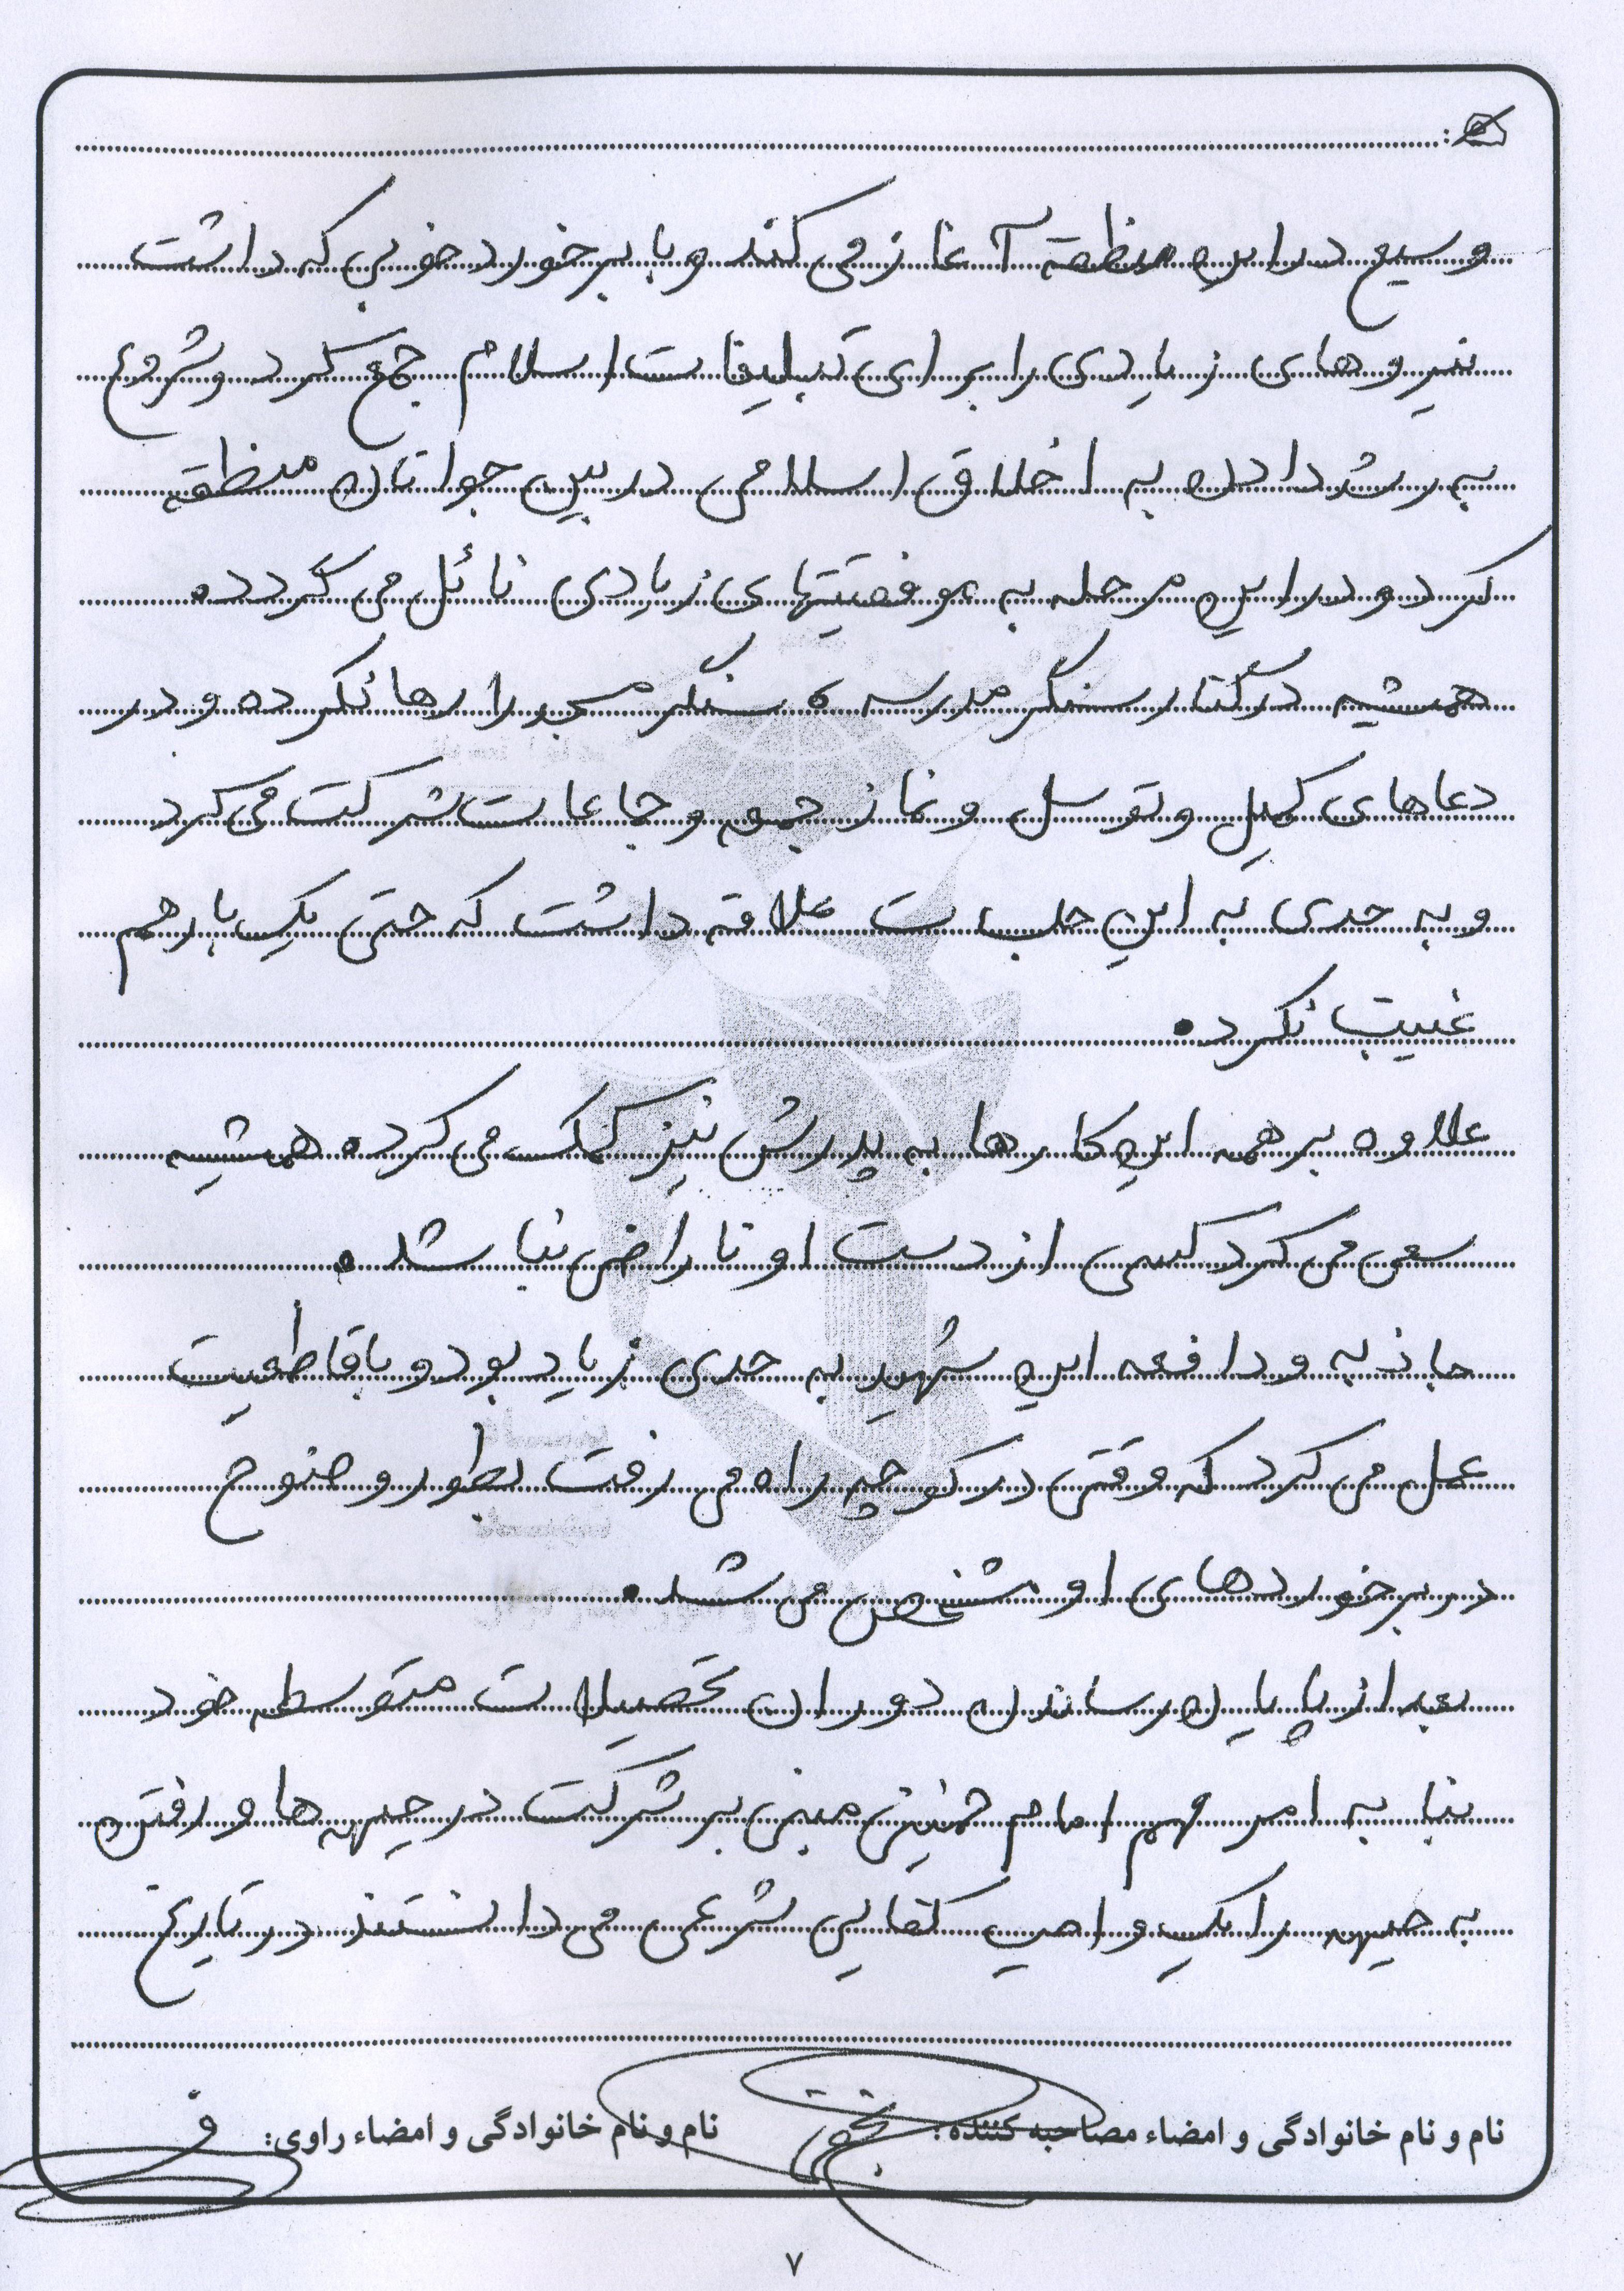 وسیع در این منطقه آغاز می کند و با برخورد خوبی که داشت
نیروهای زیادی را برای تبلیغات اسلام جمع کرد و شروع
به رشد دادن به اخلاق اسلامی در بین جوانان منطقه
کرد و در این مرحله به موفقیتهای زیادی نائل می گردد.
همیشه در کنار سنگر مدرسه، سنگر مسجد را رها نکرده و در
دعاهای کمیل و توسل و نماز جمعه و جماعات شرکت می کرد
و به حدی به این جلسات علاقه داشت که حتی یک بار هم
غیبت نکرد.
علاوه بر همه این کارها به پدرش نیز کمک می کرد. همیشه
سعی می کرد کسی از دست او ناراضی نباشد.
جاذبه و دافعه این شهید به حدی زیاد بود و با قاطعیت
عمل می کرد که وقتی در کوچه راه می رفت بطور وضوح
در برخوردهای او مشخص می شد.
بعد از پایان رساندن دوران تحصیلات متوسطه خود
بنا به امر مهم امام خمینی مبنی بر شرکت در جبهه ها و رفتن
به جبهه را یک واجب کفایی شرعی می دانستند در تاریخ
نام و نام خانوادگی و امضاء مصاحبه کننده:
نام و نام خانوادگی و امضاء راوی:
۷